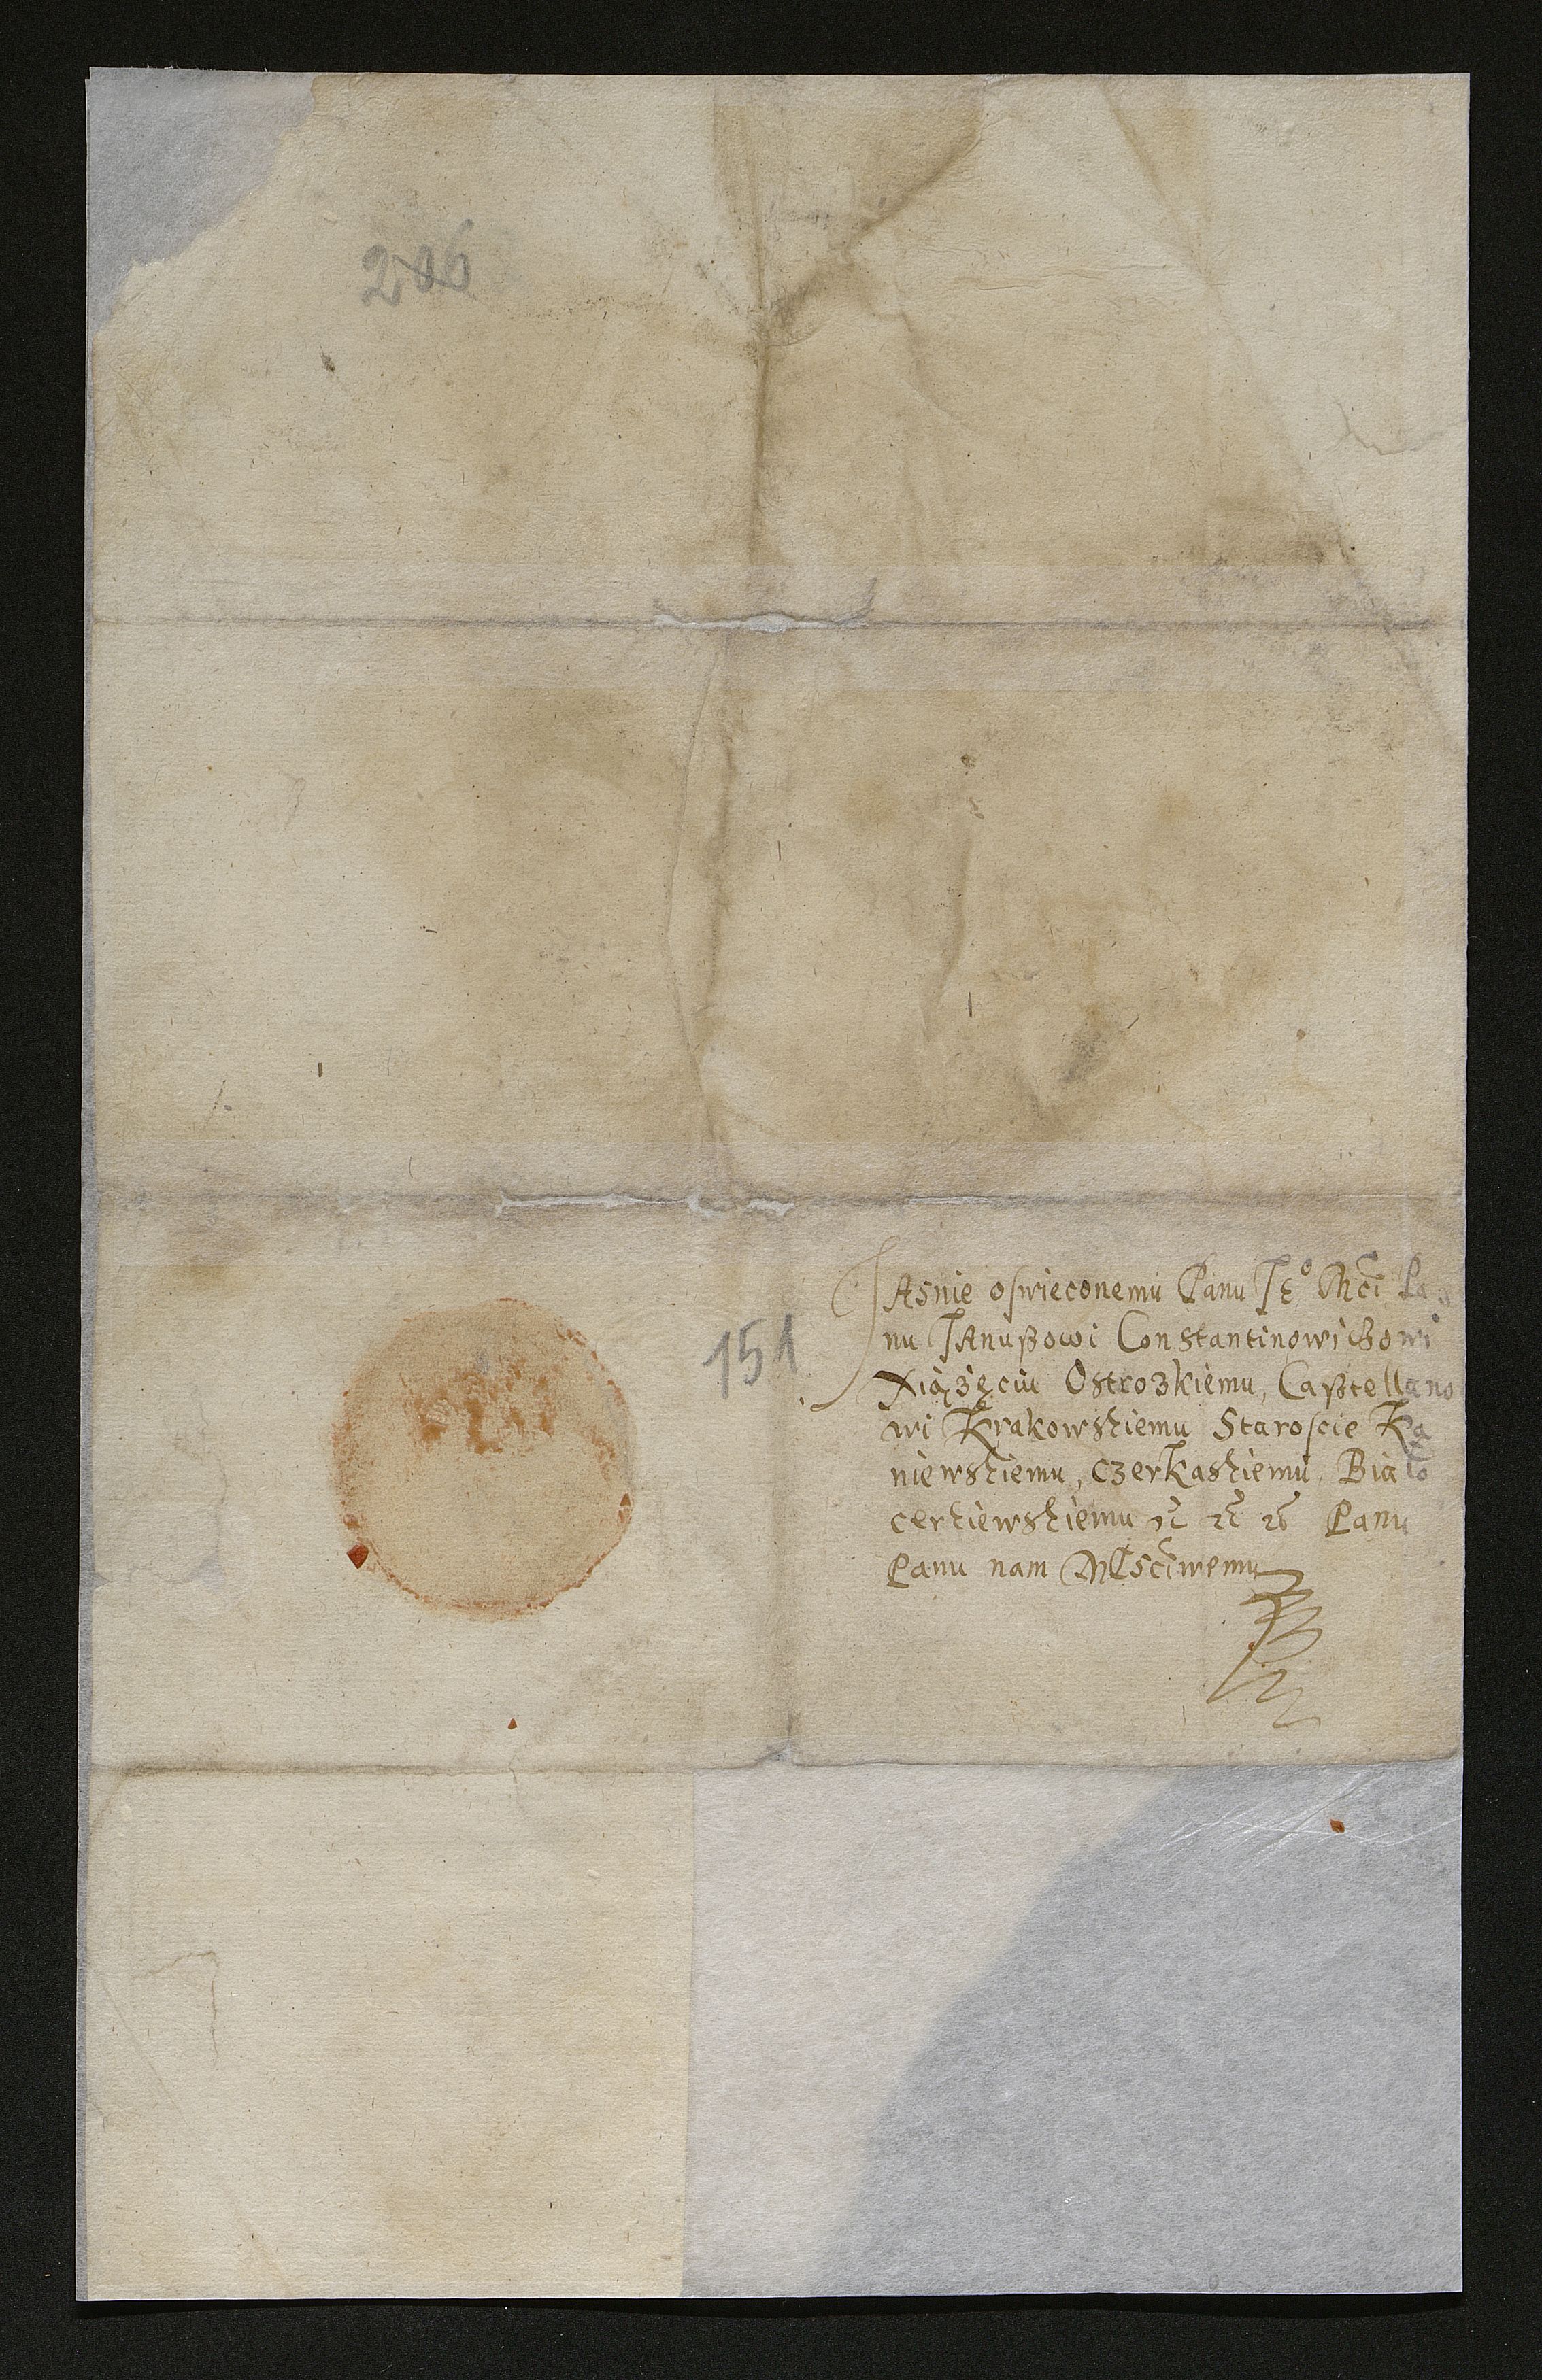 206
151
JAsnie oswieconemu Panu Je° Mci Pa
nu JAnußowi Constantinowiczowi
Xiążęciu Ostrozkiemu, Casztellano
wi Krakowskiemu Staroscie Ka
niewskiemu, Czerkaskiemu, Biało
cerkiewskiemu Panu
Panu nam Młsciwemu